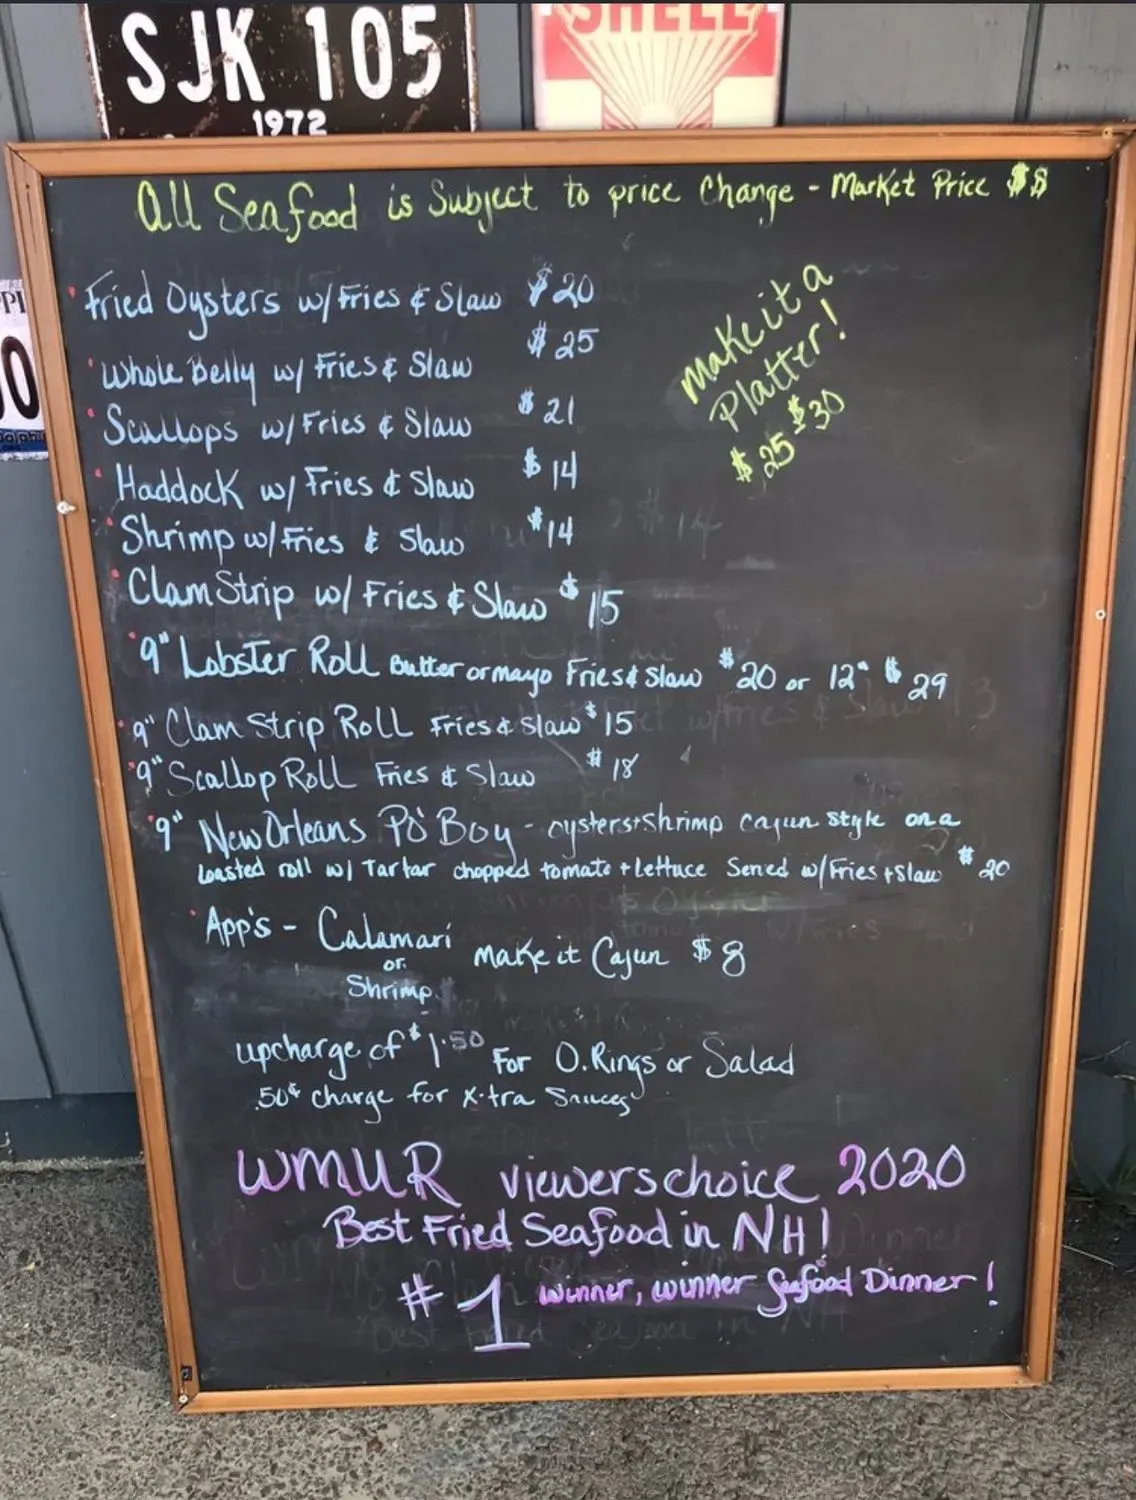 SJK 105
1972
SHELL
All Seafood is Subject to price Change - Market Price $$
Fried Oysters w/ Fries & Slaw $20
Whole Belly w/ Fries & Slaw $25
Scallops w/ Fries & Slaw $21
Haddock w/ Fries & Slaw $14
Shrimp w/ Fries & Slaw $14
Clam Strip w/ Fries & Slaw $15
9" Lobster Roll Butter or mayo Fries & Slaw $20 or 12" $29
9" Clam Strip Roll Fries & Slaw $15
9" Scallop Roll Fries & Slaw $18
9" New Orleans Po' Boy - oysters + Shrimp Cajun Style on a
toasted roll w/ Tartar chopped tomato + lettuce Served w/ Fries + Slaw $20
App's - Calamari
or
Shrimp
make it Cajun $8
Make it a
Platter!
$25 $30
upcharge of $1.50 For O.Rings or Salad
.50¢ charge for x-tra Sauces
WMUR viewers choice 2020
Best Fried Seafood in NH!
#1 winner, winner Seafood Dinner!